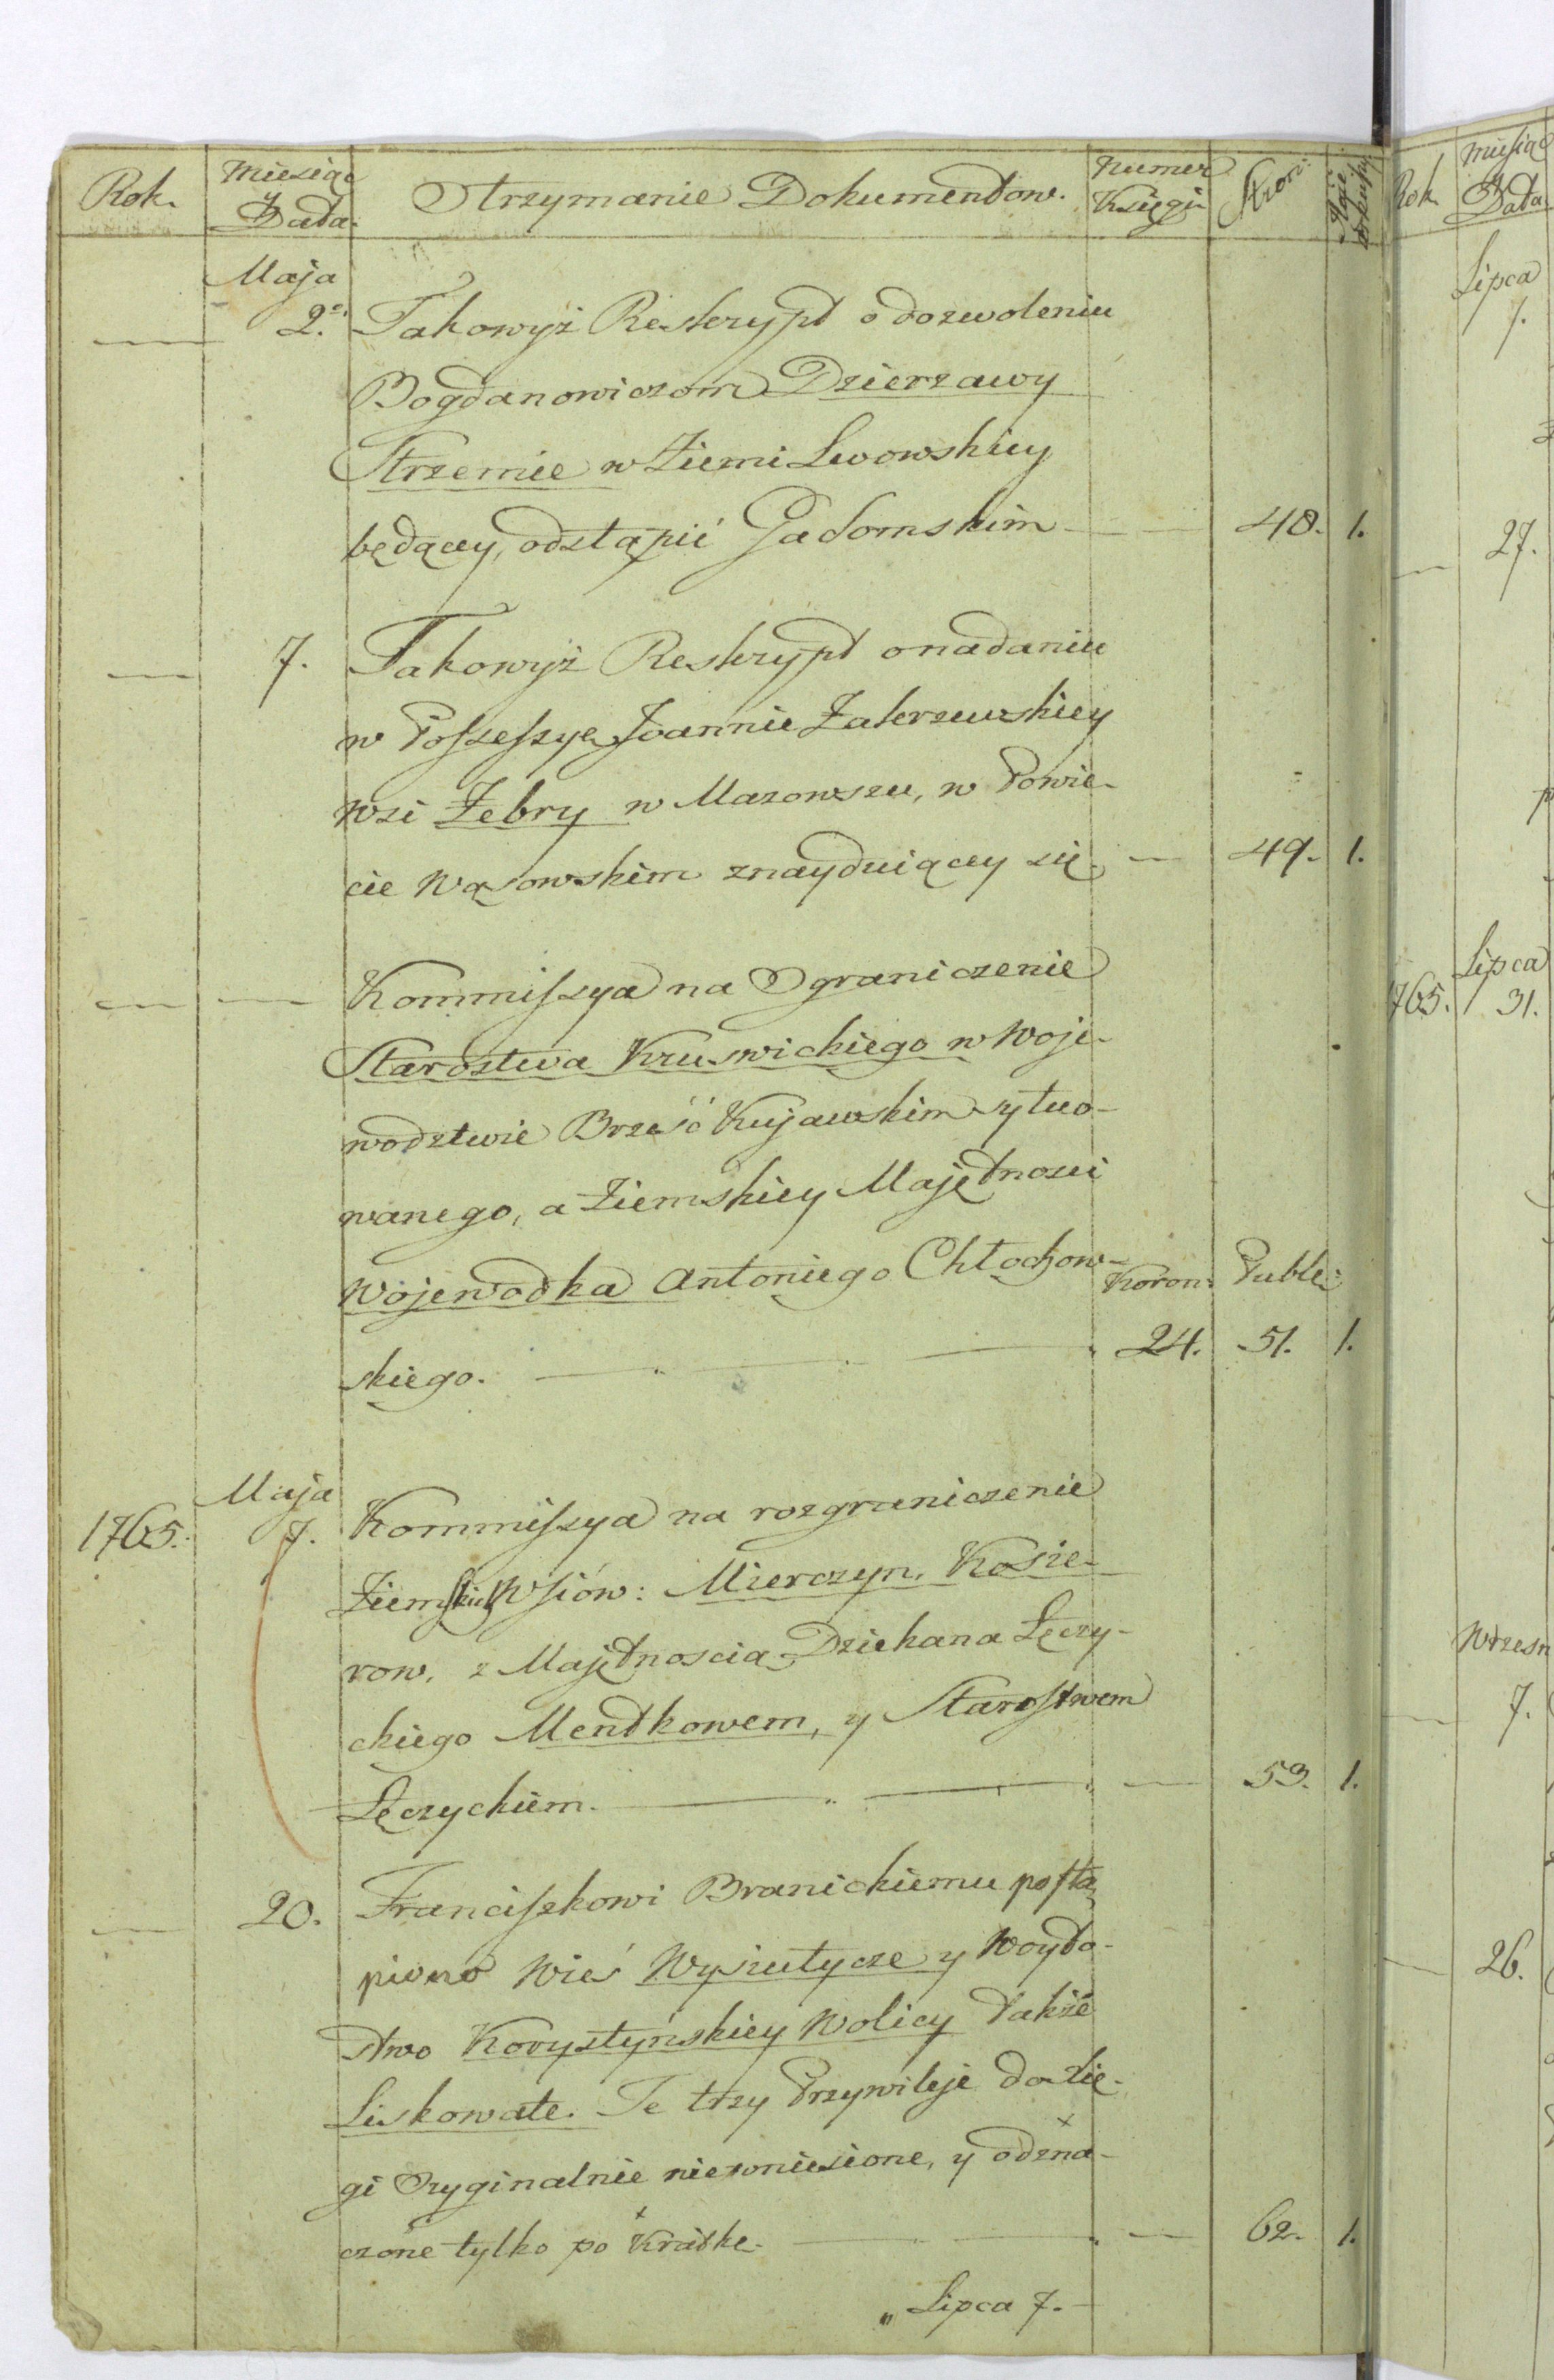 Rok. Miesiąc y Data. Otrzymanie Dokumentow. Numer Księgi Stron:
Maja
2. Takowyż Reskrypt o dozwoleniu
Bogdanowiczom Dzierzawy
Strzemie w Ziemi Lwowskiey
będącey, odstąpić Gadomskim — 48. 1.
7. Takowyż Reskrypt o nadaniu
w Possessyę Joannie Zakrzewskiey
Wsi Żebry w Mazowszu, w Powie-
cie Wąsowskim znayduiącey się. — 49. 1.
Kommissya na Ograniczenie
Starostwa Kruswickiego w Woje-
wodztwie Brześć Kujawskim sytuo-
wanego, a Ziemskiey Majętnosci
Wojewodka Antoniego Chłochow- Koron: Publ:
skiego. — 24. 51. 1.
Maja
1765. 7. Kommissya na rozgraniczenie
Ziemskich Wsiów: Mierczyn, Kosie-
row, z Majętnoscią Dziekana Łęczy-
ckiego Mentkowem, y Starostwem
Łęczyckiem. — 53. 1.
20. Franciszkowi Branickiemu postą
piono Wieś Wysiutycze y Woyto-
stwo Korystyńskiey Wolicy także
Liskowate. Te trzy Przywileje do Xię-
gi Oryginalnie niewniesione, y odzna-
czone tylko po Krótke. — 62. 1.
„ Lipca 7.
Rok Miesiąc Data
Lipca
1.
27.
Lipca
1765. 31.
Wrzesn
7.
26.